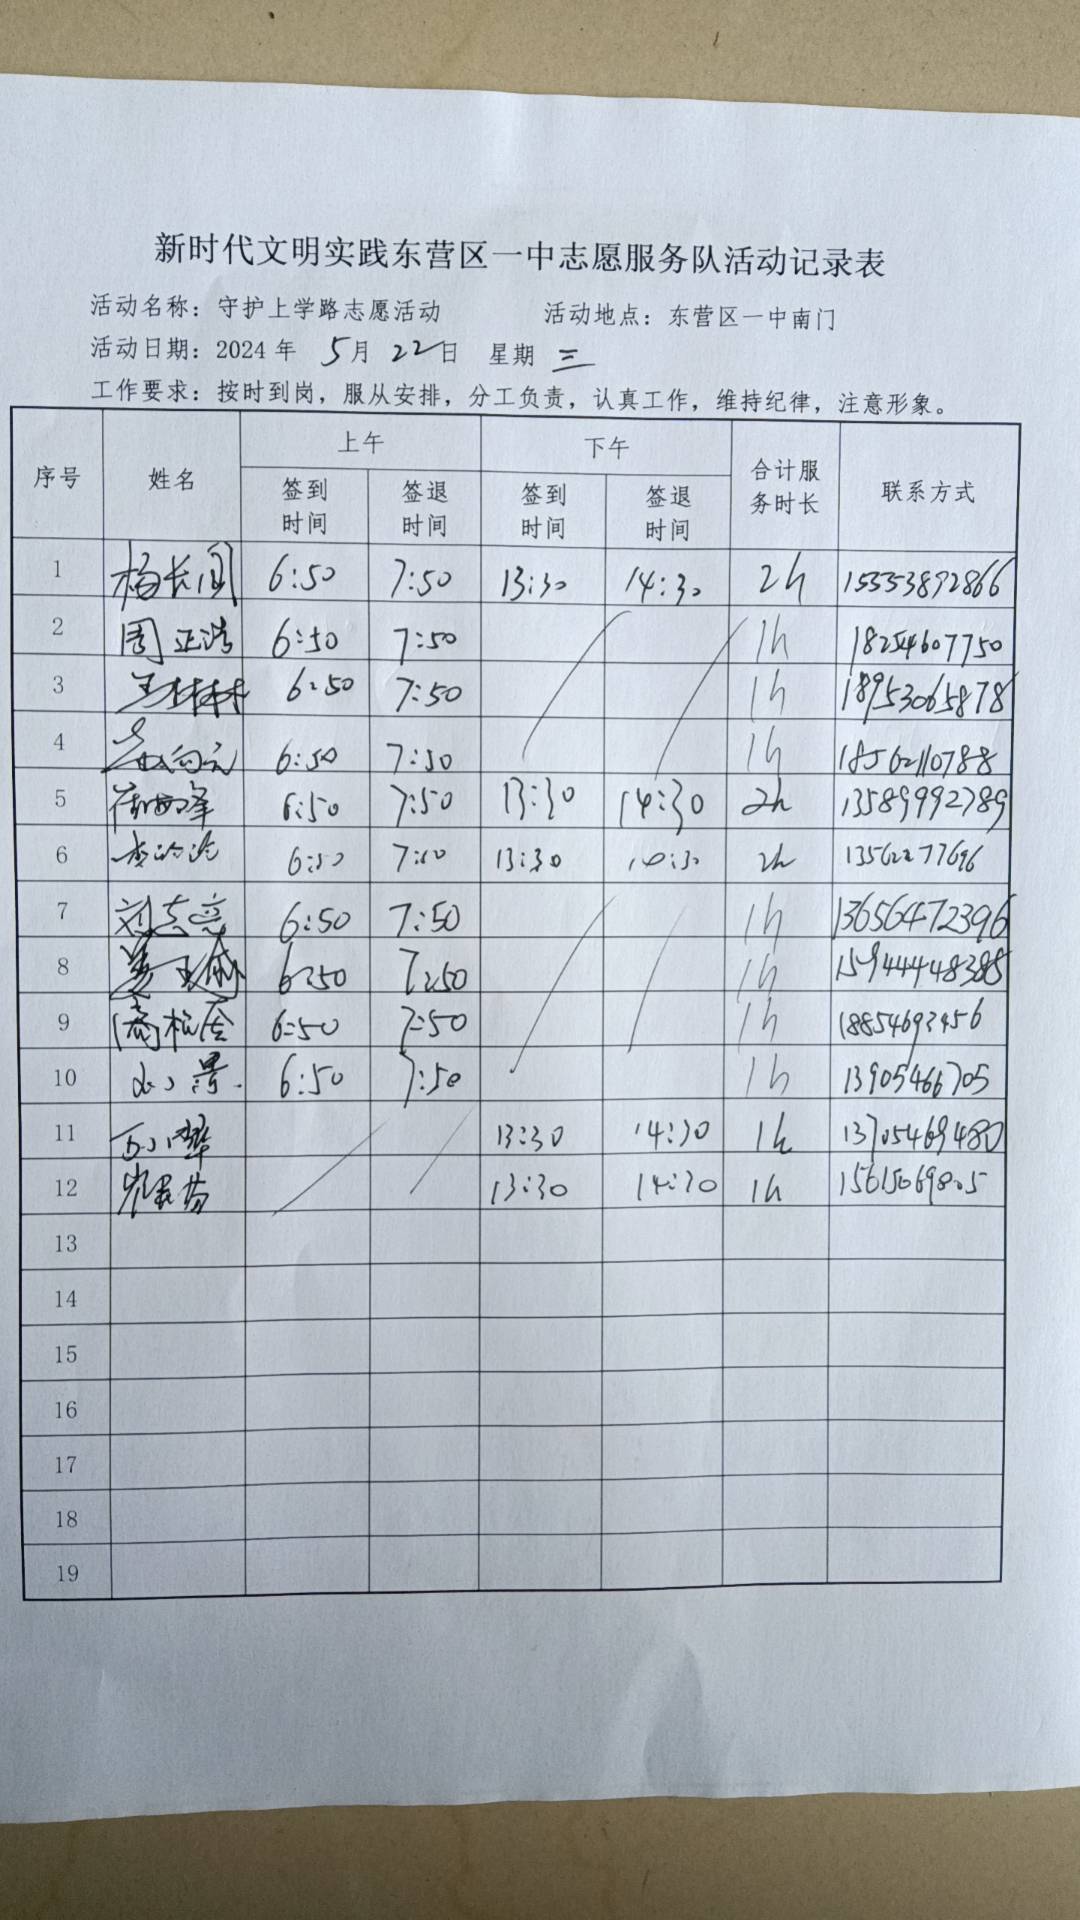 新时代文明实践东营区一中志愿服务队活动记录表
活动名称：守护上学路志愿活动 活动地点：东营区一中南门
活动日期：2024年 5月 22日 星期 三
工作要求：按时到岗，服从安排，分工负责，认真工作，维持纪律，注意形象。
序号 姓名 上午 下午 合计服务时长 联系方式
签到时间 签退时间 签到时间 签退时间
1 6:50 7:50 13:30 14:30 2h 15553892866
2 周正浩 6:50 7:50 1h 18254607750
3 王林林 6:50 7:50 1h 18953065878
4 6:50 7:50 1h 18562110788
5 6:50 7:50 13:30 14:30 2h 13589992789
6 6:50 7:50 13:30 14:30 2h 13562277696
7 刘志亮 6:50 7:50 1h 13656472396
8 6:50 7:50 1h
9 6:50 7:50 1h 18854692456
10 6:50 7:50 1h 13905466705
11 13:30 14:30 1h 13705469480
12 13:30 14:30 1h 15615069805
13
14
15
16
17
18
19